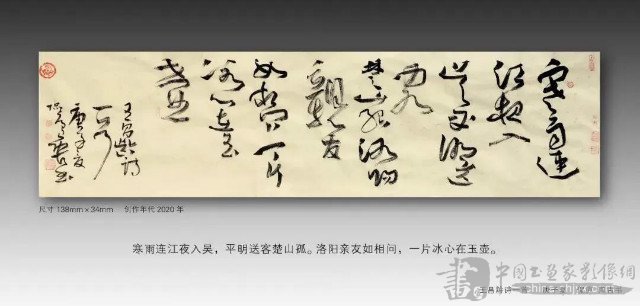 寒雨連
江夜入
吴平明送
客
楚山孤洛陽
親友
如相問一片
冰心在玉
壺
王昌齡詩
一首
庚子年夏
尺寸 138mm×34mm 创作年代 2020 年
寒雨连江夜入吴，平明送客楚山孤。洛阳亲友如相问，一片冰心在玉壶。
書 中国书画家影像网